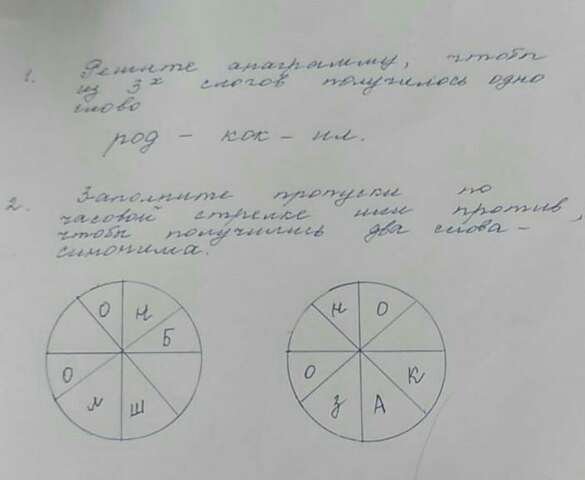 1. Решите анаграмму, чтобы
из 3х слогов получилось одно
слово
род - кок - ил.
2. Заполните пропуски по
часовой стрелке или против,
чтобы получились два слова-
синонима.
О Н Н О
Б
О О К
М Ш З А